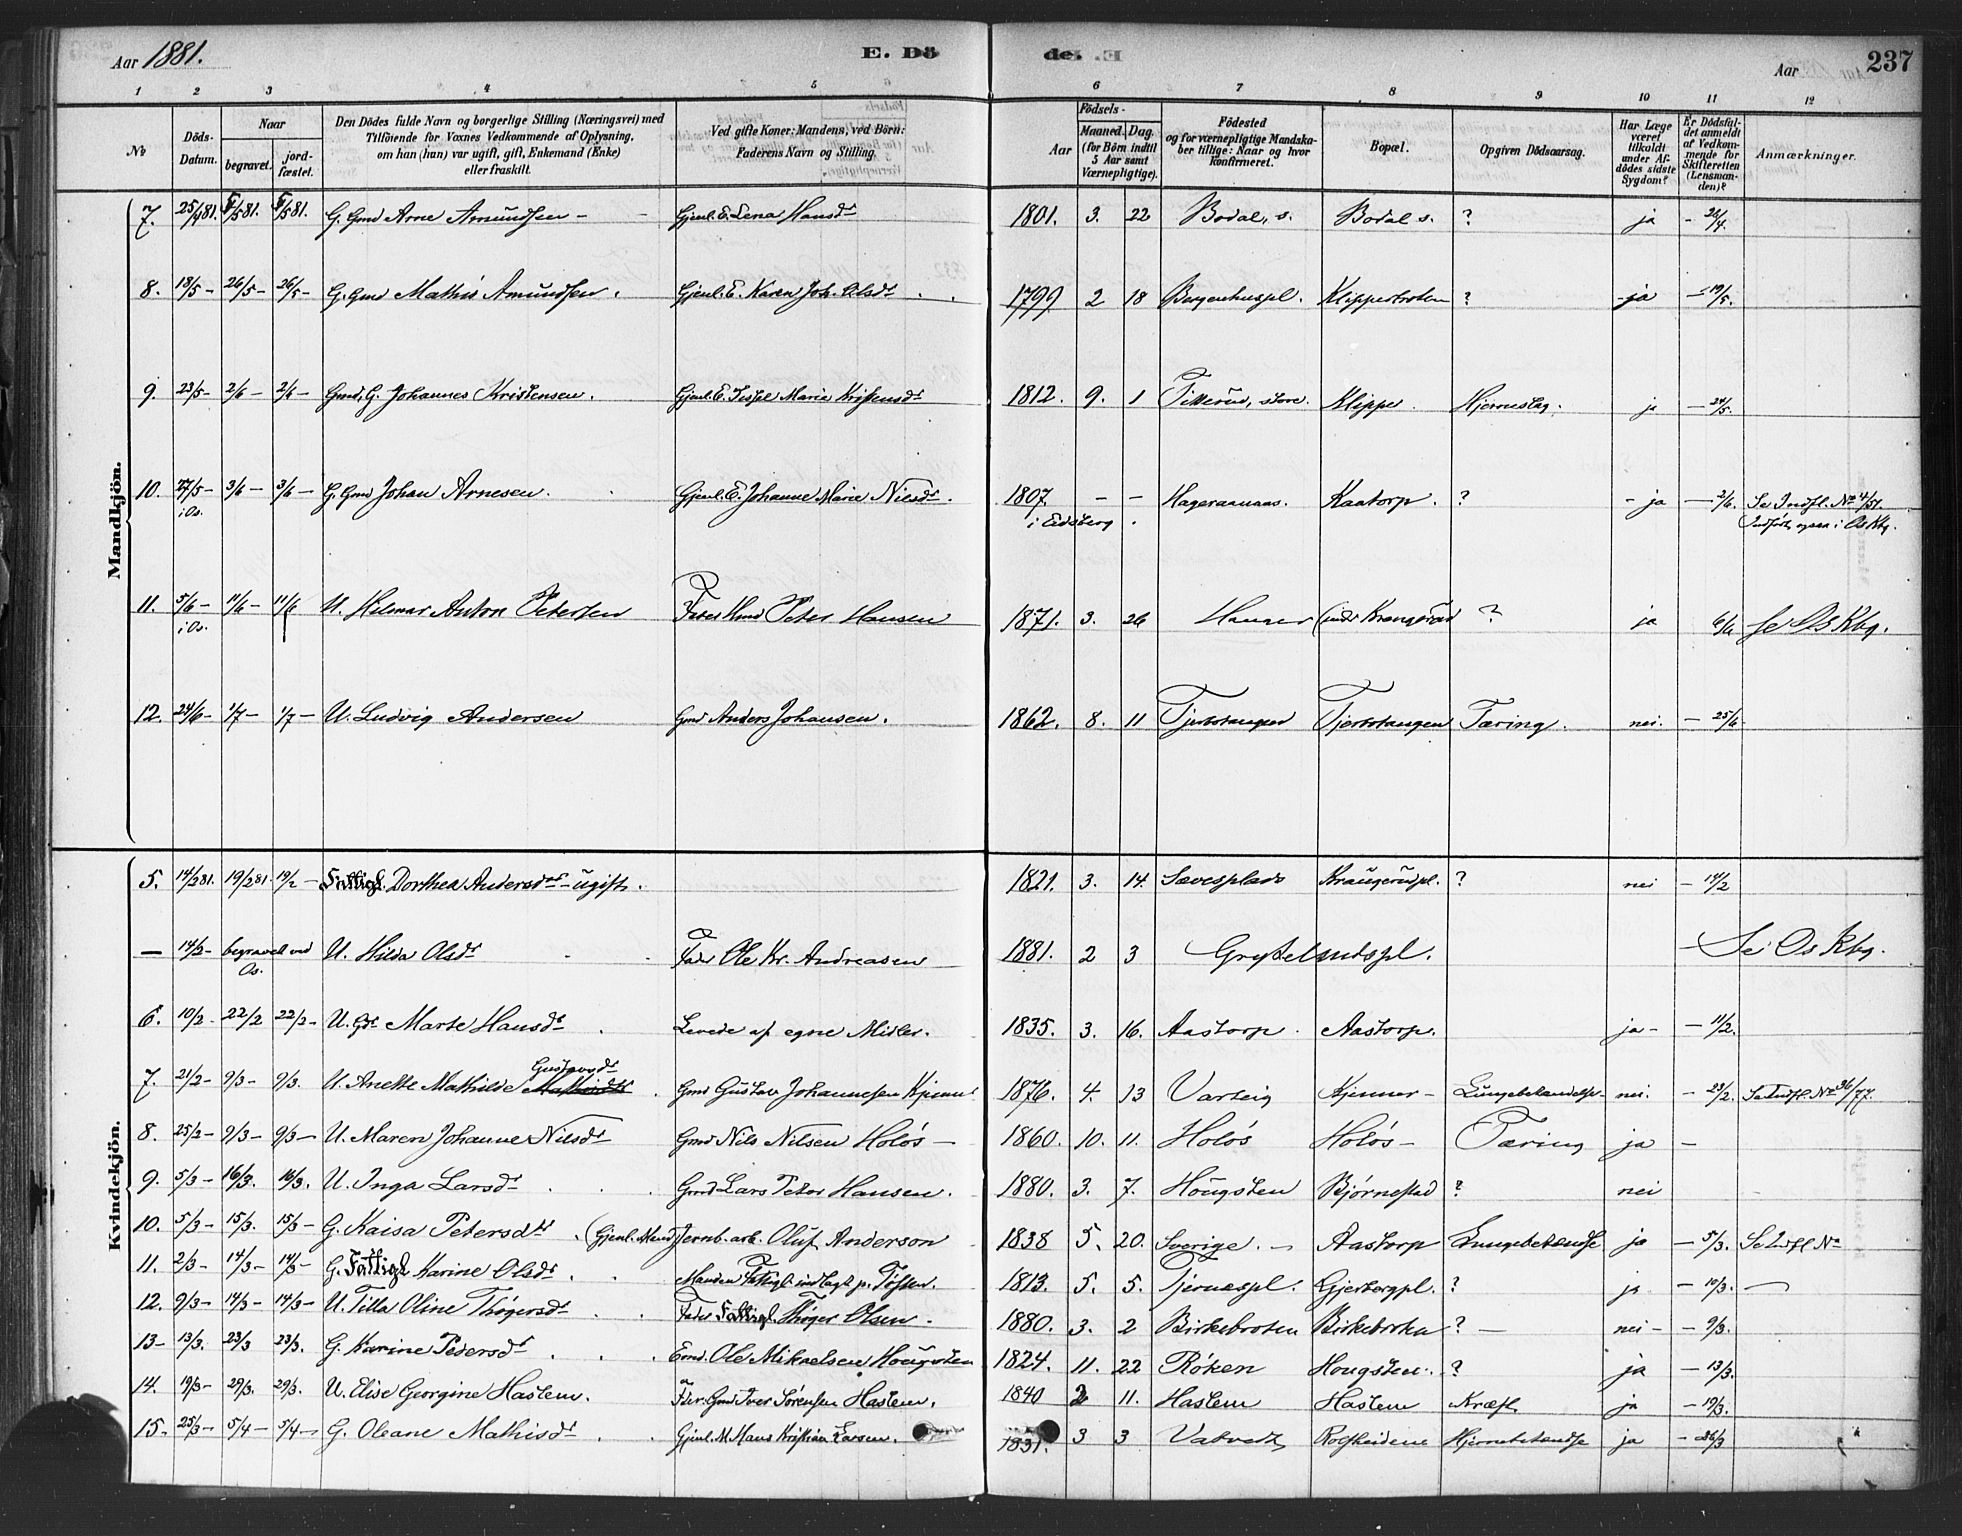 Aar 1881. E. Dö de. Aar 237
1 2 3 4 5 6 7 8 9 10 11 12
No Döds-Datum. Naar begravet. jordfæstet. Den Dödes fulde Navn og borgerlige Stilling (Næringsvei) med Tilföiende for Voxnes Vedkommende af Oplysning, om han (hun) var ugift, gift, Enkemand (Enke) eller fraskilt. Ved gifte Koner: Mandens, ved Börn: Faderens Navn og Stilling. Aar Födsels- Maaned. Dag. (for Börn indtil 5 Aar samt Værnepligtige). Födested og for værnepligtige Mandskaber tillige: Naar og hvor konfirmeret. Bopæl. Opgiven Dödsaarsag. Har Læge været tilkaldt under Afdödes sidste Sygdom? Er Dödsfaldet anmeldt af Vedkommende for Skifteretten (Lensmanden)? Anmærkninger.
Mandkjön.
7. 25/4 81. 5/5 81. 5/5 81. G. Gmd Arne Amundsen - Gjenl. E. Lena Hansdr 1801. 3. 22 Bodal, s. Bodal s. ? ja - 26/4.
8. 18/5 - 26/5 - 26/5 - G. Gmd Mathis Amundsen. Gjenl. E. Karen Joh. Olsdr 1799 2 18 Borgenhuspl. Klipperbroten ? ja - 19/5.
9. 23/5 - 2/6 - 2/6 - Gmd, G. Johannes Kristensen. Gjenl. E. Maria 1812. 9. 1 Titterud, store. Klippe. Hjerneslag. ja - 24/5.
10. 27/5 - 3/6 - 3/6 - G. Gmd Johan Arnesen. Gjenl. E. Johanne Marie Nilsdr. 1807 - - Hageramaas. Kaatorp. ? - ja - 2/6. Se Indfl. No 4/51.
i Os. i Eidsberg. Indført ogsaa i Os Kbg.
11. 5/6 - 11/6 - 11/6 U. Hilmar Anton Petersen Fader Gmd Peter Hansen 1871. 3. 26 Hanger (under Krangerød ? ja 6/6 Se Os Kbg.
i Os.
12. 24/6 - 1/7 - 1/7 - U. Ludvig Andersen Gmd Anders Johansen. 1862. 8. 11 Tjerbotangen Tjerbotangen Tæring. nei. - 25/6
Kvindekjön.
5. 14/2 81. 19/2 81. 19/2 - Fattigl. Dorthea Andersdr - ugift. 1821. 3. 14. Sævesplads Kraugerudpl. ? nei - 14/2
— 14/2 - begravet ved Os. U. Hilda Olsdr Fader Ole Kr. Andreasen 1881. 2 3 Gryttelundspl. - Se Os Kbg.
6. 10/2 - 22/2 22/2 - U. Gdr Marte Hansdr Levede af egne Midler. 1835. 3. 16. Aastorp. Aastorp. ja - - 11/2.
7. 21/2 - 9/3 - 9/3. U. Anette Mathilde Gustavsdr Gmd Gustav Johannesen Kjenner 1876. 4. 13 Varteig Kjenner - Lungebetændelse - nei. - 23/2. Se Indfl. No 36/77.
8. 25/2 - 9/3 - 9/3 - U. Maren Johanne Nilsdr Gmd Nils Nilsen Holøs - 1860. 10. 11. Holøs Holøs - Tæring ja -
9. 5/3 - 16/3. 16/3. U. Inga Larsdr Gmd Lars Peter Hansen. 1880. 3. 7. Hougsten Bjørnestad ? nei
10. 5/3 - 15/3. 15/3 - G. Kaisa Petersdr. (Gjenl. Mand) Jernb. arb. Oluf Anderson 1838 5. 20. Sverige. - Aastorp Lungebetændse ja - 5/3. Se Indfl No
11. 2/3 - 14/3 - 14/3 - G. Fattigl Karine Olsdr. Manden Fattigl indlagt p. 1813. 5. 5. Tjernespl. Gjerbergpl. ? ja - 10/3. —
12. 9/3 - 14/3 - 14/3 - U. Tilla Oline Thøgersdr Fader Fattigl. Thøger Olsen. 1880. 3. 2 Birkebroten Birkebroten ? - nei - - 9/3.
13 - 13/3. 23/3 23/3. G. Karine Pedersdr Emd. Ole Mikaelsen Hougsten 1824. 11. 22 Røken Hougsten. ? ja - 13/3.
14. 19/3 - 29/3. 29/3. U. Elise Georgine Haslem. Fader. Gmd Iver Sørensen Haslem. 1840 2 11. Haslem Haslem Kræft ja - 19/3.
15. 25/3 - 5/4 - 5/4 - G. Oleane Mathisdr Gjenl. M. Hans Kristian Larsen. 1831. 3 3 Vatvedt Rolfsheidene Hjernebetændse ja - 26/3